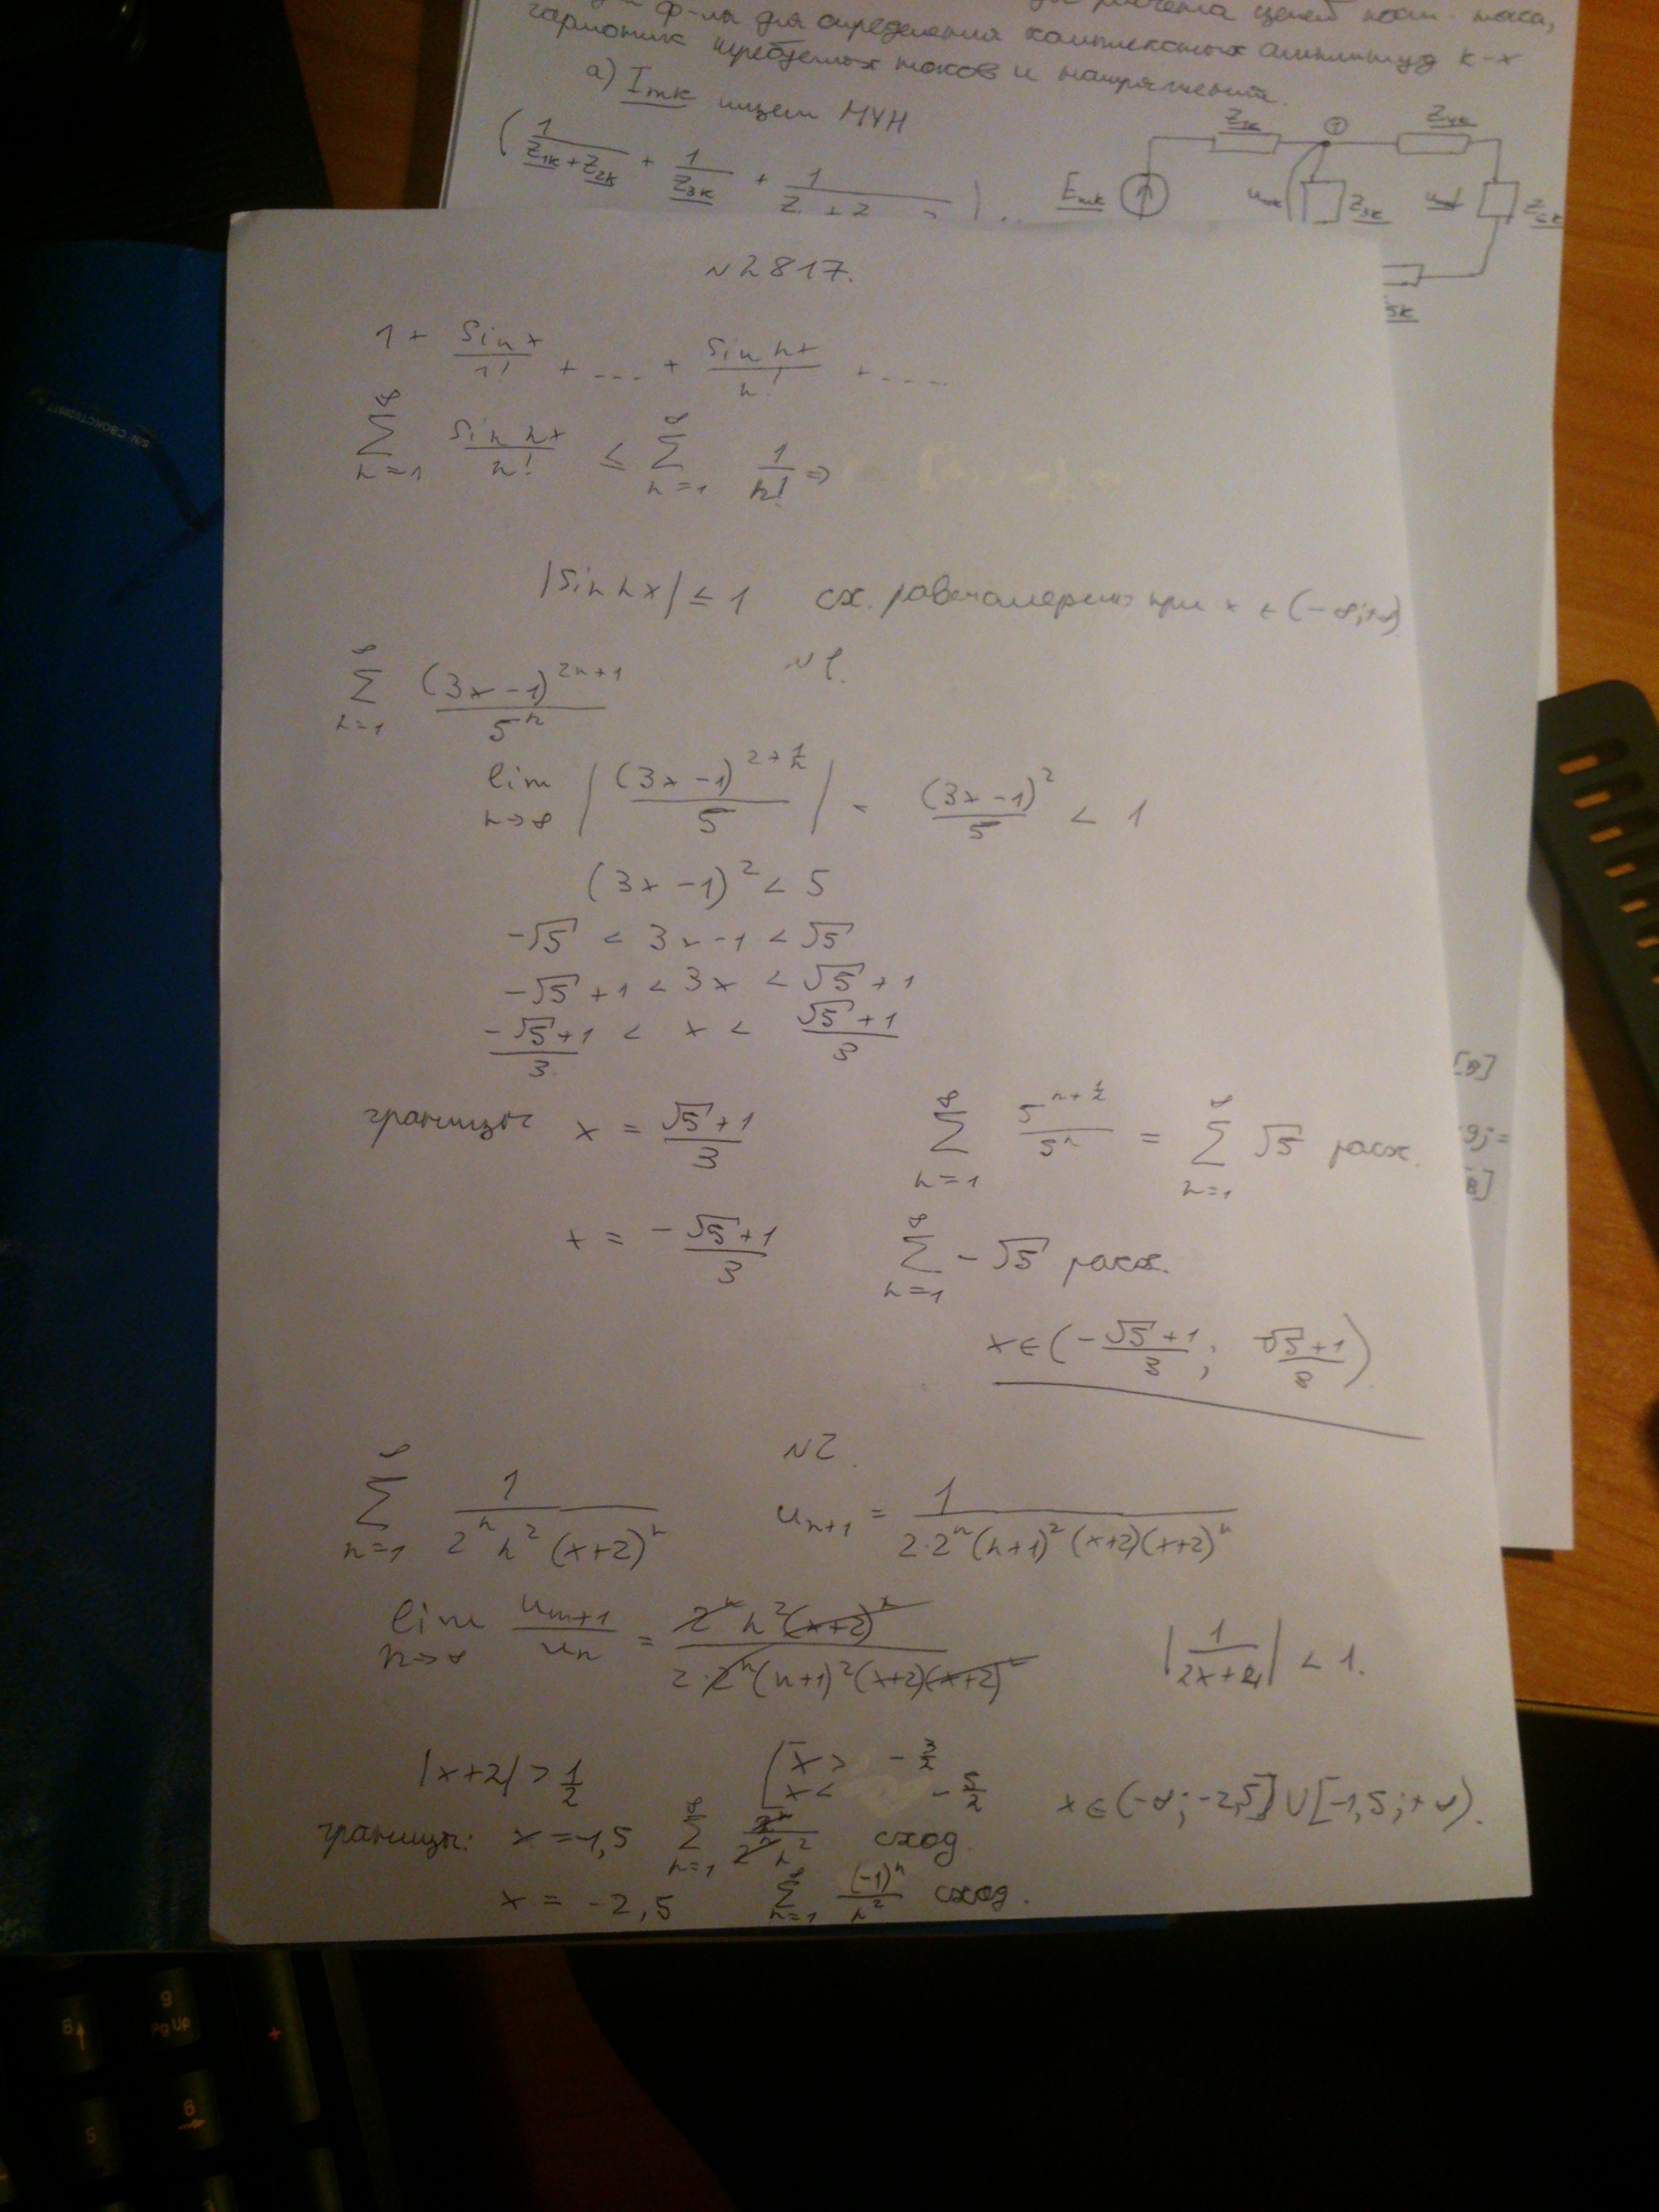 ф-лы для определения комплексных амплитуд к-х
гармоник требуемых токов и напряжений.
а) Imk ищем МУН
( 1/(Z1k+Z2k) + 1/Z3k + 1/
Z1k
1
Z4k
Emk
Z3k
N2817.
1 + sin x/1! + ... + sin nx/n! + ....
∞∑n=1 sin nx/n! ≤ ∞∑n=1 1/n! ⇒
|sin nx| ≤ 1 сх. равномерно при x ∈ (-∞;+∞)
N1.
∞∑n=1 (3x-1)^(2n+1)/5^n
lim n→∞ |(3x-1)^(2+1/n)/5| = (3x-1)^2/5 < 1
(3x-1)^2 < 5
-√5 < 3x-1 < √5
-√5+1 < 3x < √5+1
(-√5+1)/3 < x < (√5+1)/3
границы x = (√5+1)/3 ∞∑n=1 5^(n+1/2)/5^n = ∞∑n=1 √5 расх.
x = (-√5+1)/3 ∞∑n=1 -√5 расх.
x∈((-√5+1)/3; (√5+1)/3)
N2.
∞∑n=1 1/(2^n n^2 (x+2)^n) u_{n+1} = 1/(2·2^n (n+1)^2 (x+2)(x+2)^n)
lim n→∞ u_{n+1}/u_n = 2^n n^2 (x+2)^n/(2·2^n (n+1)^2 (x+2)(x+2)^n) |1/(2x+4)| < 1.
|x+2| > 1/2 [x > -3/2 x < -5/2 x∈(-∞;-2,5]∪[-1,5;+∞).
границы: x = -1,5 ∞∑n=1 2^n/(2^n n^2) сход.
x = -2,5 ∞∑n=1 (-1)^n/n^2 сход.
[В]
9j=
В]
9
Pg Up
6
+
5
6
3